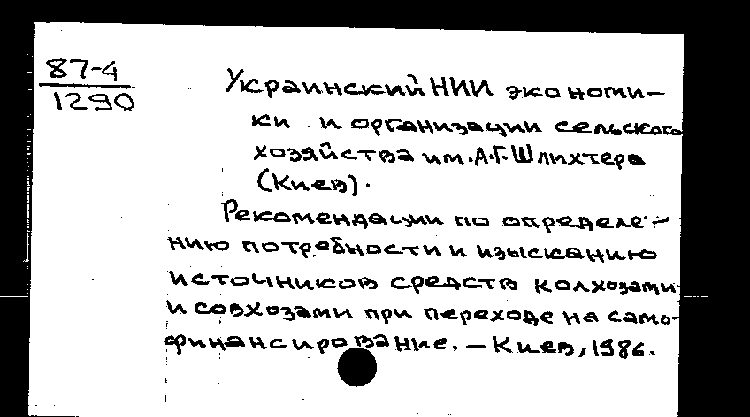 87-4
1290
Украинский НИИ экономи-
ки и организации сельского
хозяйства им. А.Г. Шлихтера
(Киев).
Рекомендации по определе-
нию потребности и изысканию
источников средств колхозами
и совхозами при переходе на само-
финансирование. – Киев, 1986.